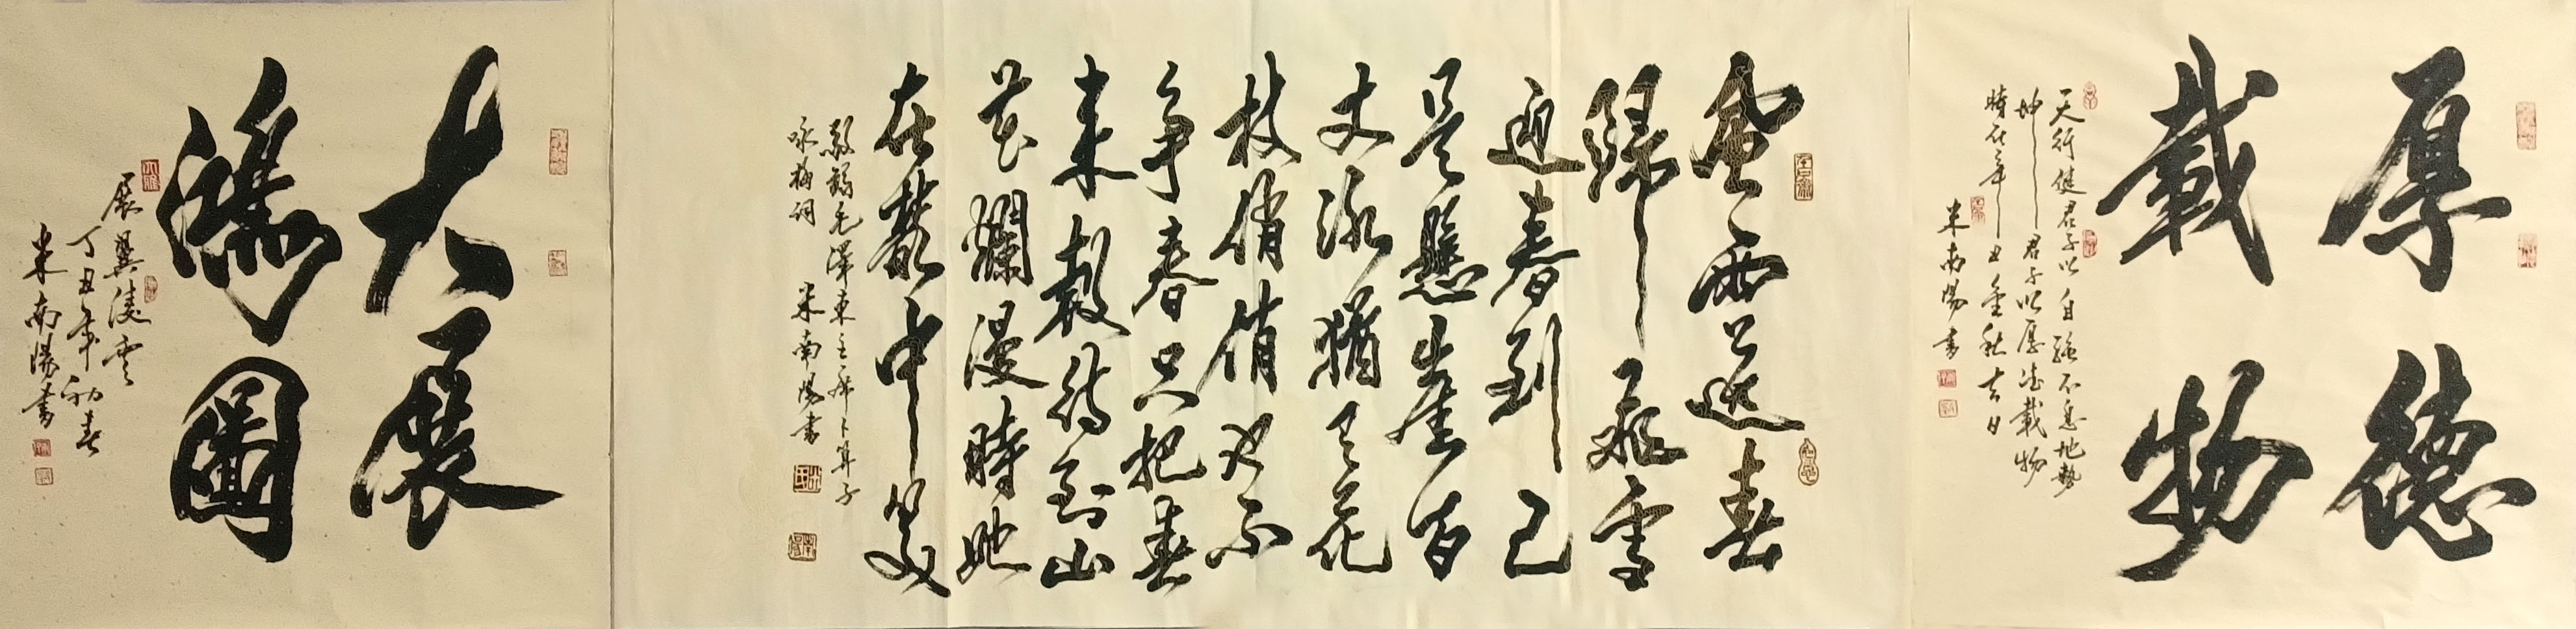 厚德
載物
天行健君子以自強不息地勢
坤君子以厚德載物
時在辛丑金秋吉日
米南陽書
風雨送春
歸飛雪
迎春到已
是懸崖百
丈冰猶有花
枝俏俏也不
争春只把春
來報待到山
花爛漫時她
在叢中笑
敬錄毛澤東主席卜算子
咏梅詞 米南陽書
大展
鴻圖
展翼淩雲
丁丑年初春
米南陽書